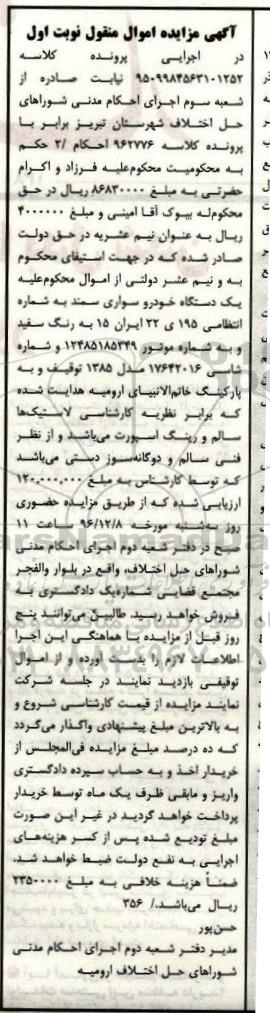 آگهی مزایده اموال منقول نوبت اول
در اجرایی پرونده کلاسه
۹۵۰۹۹۸۴۵۶۳۱۰۱۲۵۲ نیابت صادره از
شعبه سوم اجرای احکام مدنی شوراهای
حل اختلاف شهرستان تبریز برابر با
پرونده کلاسه ۹۶۲۷۷۶ احکام /۲ حکم
به محکومیت محکوم‌علیه فرزاد و اکرام
حضرتی به مبلغ ۸۶۸۳۰۰۰۰ ریال در حق
محکوم‌له بیوک آقا امینی و مبلغ ۴۰۰۰۰۰۰
ریال به عنوان نیم عشریه در حق دولت
صادر شده که در جهت استیفای محکوم
به و نیم عشر دولتی از اموال محکوم‌علیه
یک دستگاه خودرو سواری سمند به شماره
انتظامی ۱۹۵ ی ۲۲ ایران ۱۵ به رنگ سفید
و به شماره موتور ۱۲۴۸۵۱۸۵۳۴۹ و شماره
شاسی ۱۷۶۴۲۰۱۶ مدل ۱۳۸۵ توقیف و به
پارکینگ خاتم‌الانبیای ارومیه هدایت شده
که برابر نظریه کارشناسی لاستیک‌ها
سالم و رینگ اسپورت می‌باشد و از نظر
فنی سالم و دوگانه‌سوز دستی می‌باشد
که توسط کارشناس به مبلغ ۱۲۰,۰۰۰,۰۰۰
ارزیابی شده که از طریق مزایده حضوری
روز سه‌شنبه مورخه ۹۶/۱۲/۸ ساعت ۱۱
صبح در دفتر شعبه دوم اجرای احکام مدنی
شوراهای حل اختلاف، واقع در بلوار والفجر
مجتمع قضایی شماره‌یک دادگستری به
فروش خواهد رسید. طالبین می‌توانند پنج
روز قبل از مزایده با هماهنگی این اجرا
اطلاعات لازم را بدست آورده و از اموال
توقیفی بازدید نمایند در جلسه شرکت
نمایند مزایده از قیمت کارشناسی شروع و
به بالاترین مبلغ پیشنهادی واگذار می‌گردد
که ده درصد مبلغ مزایده فی‌المجلس از
خریدار اخذ و به حساب سپرده دادگستری
واریز و مابقی ظرف یک ماه توسط خریدار
پرداخت خواهد گردید در غیر این صورت
مبلغ تودیع شده پس از کسر هزینه‌های
اجرایی به نفع دولت ضبط خواهد شد.
ضمناً هزینه خلافی به مبلغ ۲۳۵۰۰۰۰
ریال می‌باشد./ ۳۵۶
حسن‌پور
مدیر دفتر شعبه دوم اجرای احکام مدنی
شوراهای حل اختلاف ارومیه